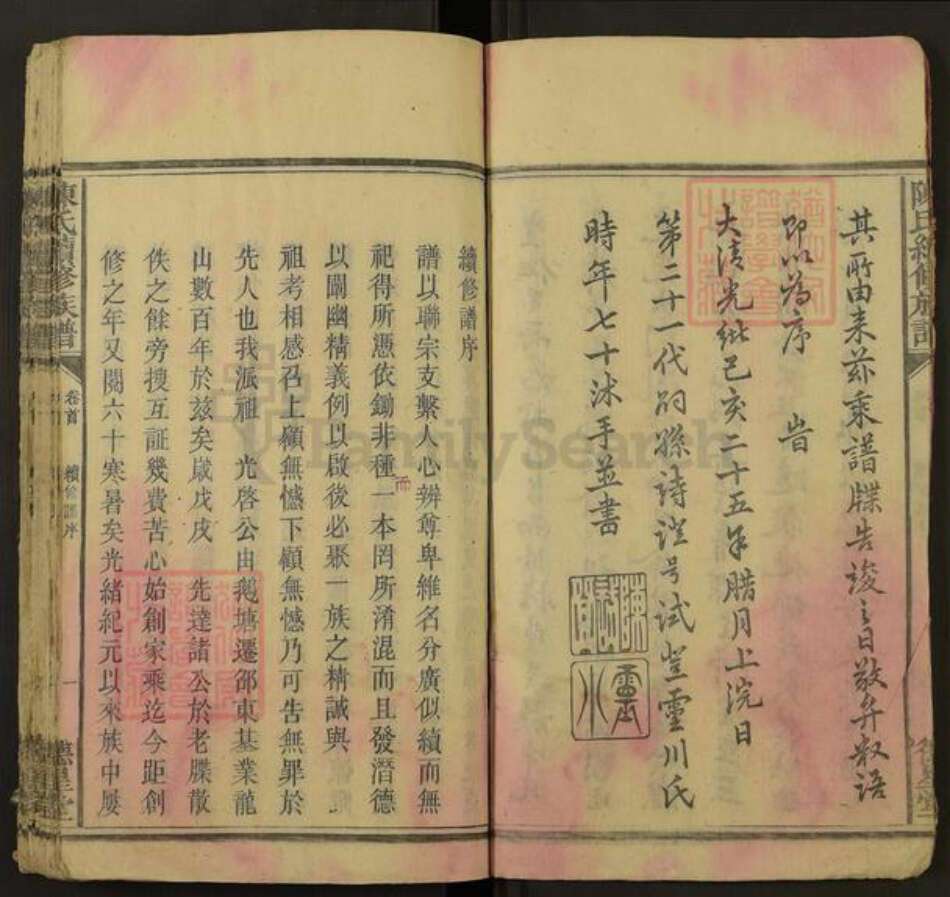 其所由来茲乘譜牒告竣之日敬弁数語
即以為序 峕
大清光緒己亥二十五年腊月上浣日
第二十一代嗣孫詩 号試 靈川氏
時年七十沐手並書
陳
靈川
續修譜序
譜以聯宗支繫人心辨尊卑維名分廣似續而無
祀得所憑依鋤非種一本罔所淆混而且發潛德
而
以闡幽精義例以啟後必聚一族之精誠與
祖考相感召上顧無憾下顧無憾乃可告無罪於
先人也我派祖 光啓公由鵝塘遷邵東基業龍
山數百年於兹矣歲戊戌 先達諸公於老牒散
佚之餘旁搜互証幾費苦心始創家乘迄今距創
修之年又閱六十寒暑矣光緒紀元以來族中屢
陳氏續修族譜
卷首
續修譜序
一
陳氏續修族譜
FamilySearch